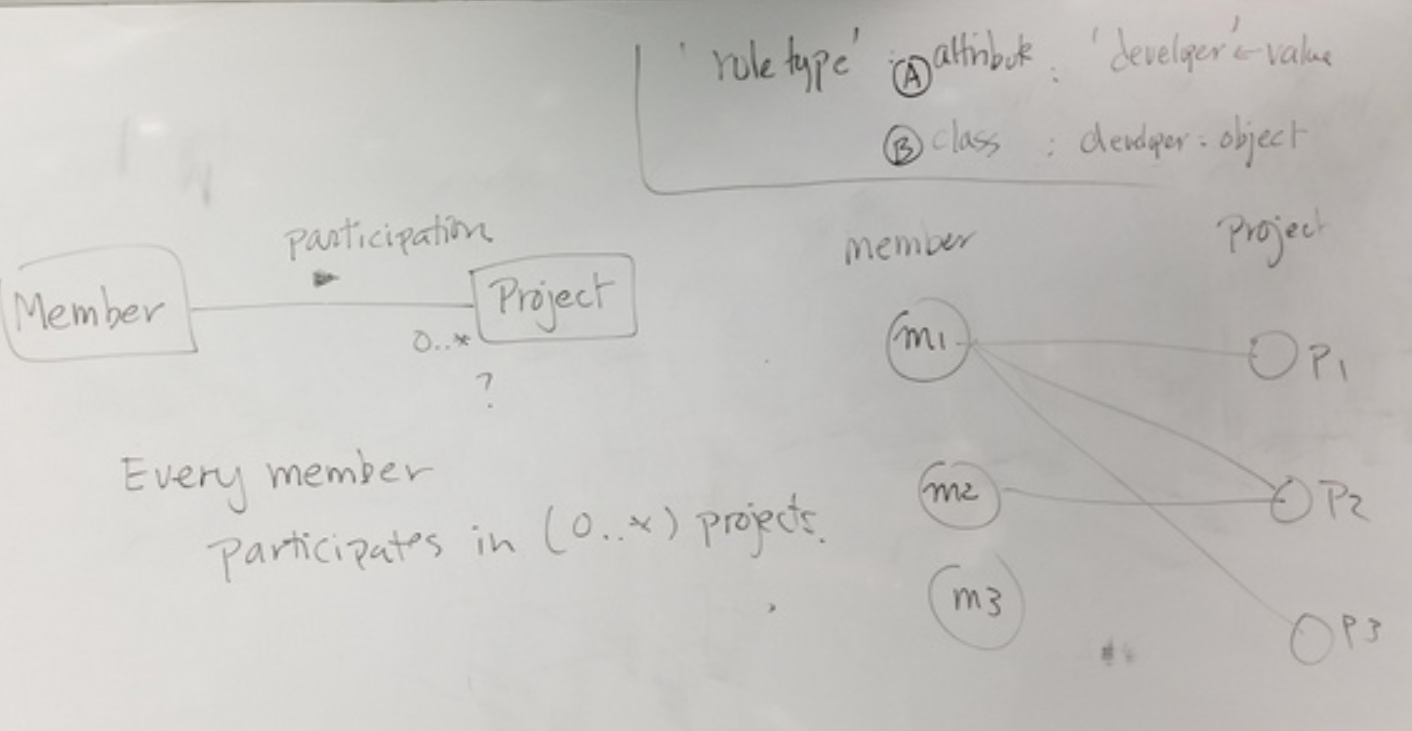 'role type' : Ⓐ attribute : 'developer' ← value
Ⓑ class : developer : object
participation
Member
Project
0..*
?
Every member
participates in (0..*) projects.
member
Project
m1
P1
m2
P2
m3
P3